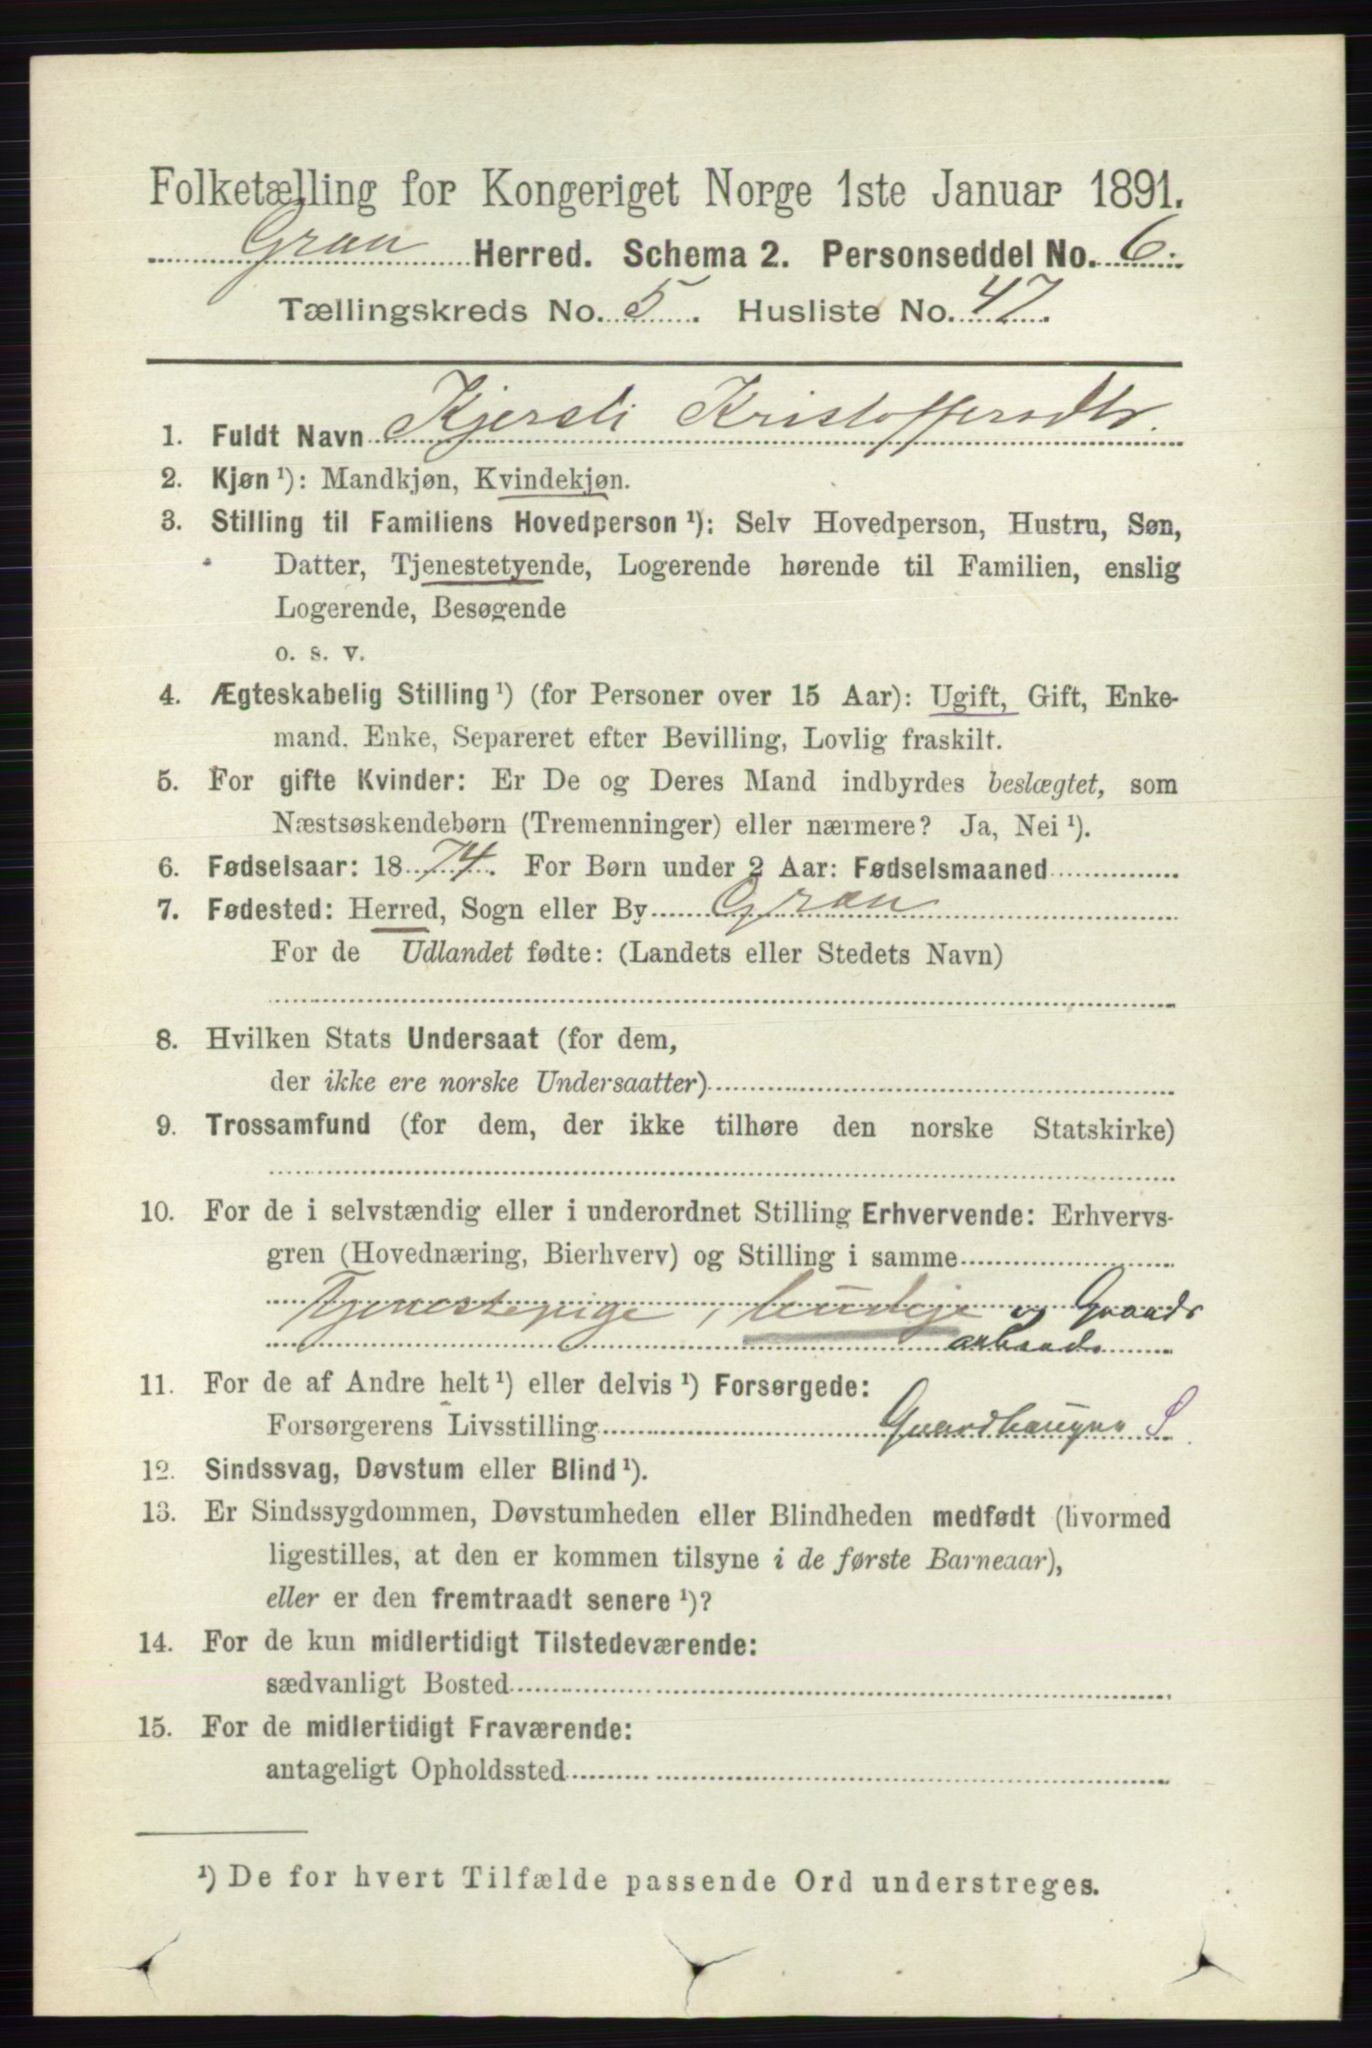 Folketælling for Kongeriget Norge 1ste Januar 1891.
Gran Herred. Schema 2. Personseddel No. 6.
Tællingskreds No. 5. Husliste No. 47.
1. Fuldt Navn Kjersti Kristoffersdtr.
2. Kjøn ¹): Mandkjøn, Kvindekjøn.
3. Stilling til Familiens Hovedperson ¹): Selv Hovedperson, Hustru, Søn,
Datter, Tjenestetyende, Logerende hørende til Familien, enslig
Logerende, Besøgende
o. s. v.
4. Ægteskabelig Stilling ¹) (for Personer over 15 Aar): Ugift, Gift, Enke-
mand, Enke, Separeret efter Bevilling, Lovlig fraskilt.
5. For gifte Kvinder: Er De og Deres Mand indbyrdes beslægtet, som
Næstsøskendebørn (Tremenninger) eller nærmere? Ja, Nei ¹).
6. Fødselsaar: 1874. For Børn under 2 Aar: Fødselsmaaned
7. Fødested: Herred, Sogn eller By Gran
For de Udlandet fødte: (Landets eller Stedets Navn)
8. Hvilken Stats Undersaat (for dem,
der ikke ere norske Undersaatter)
9. Trossamfund (for dem, der ikke tilhøre den norske Statskirke)
10. For de i selvstændig eller i underordnet Stilling Erhvervende: Erhvervs-
gren (Hovednæring, Bierhverv) og Stilling i samme
Tjenestepige, budeje og Gaards
arbeide
11. For de af Andre helt ¹) eller delvis ¹) Forsørgede:
Forsørgerens Livsstilling Gaardbruger S
12. Sindssvag, Døvstum eller Blind ¹).
13. Er Sindssygdommen, Døvstumheden eller Blindheden medfødt (hvormed
ligestilles, at den er kommen tilsyne i de første Barneaar),
eller er den fremtraadt senere ¹)?
14. For de kun midlertidigt Tilstedeværende:
sædvanligt Bosted
15. For de midlertidigt Fraværende:
antageligt Opholdssted
¹) De for hvert Tilfælde passende Ord understreges.